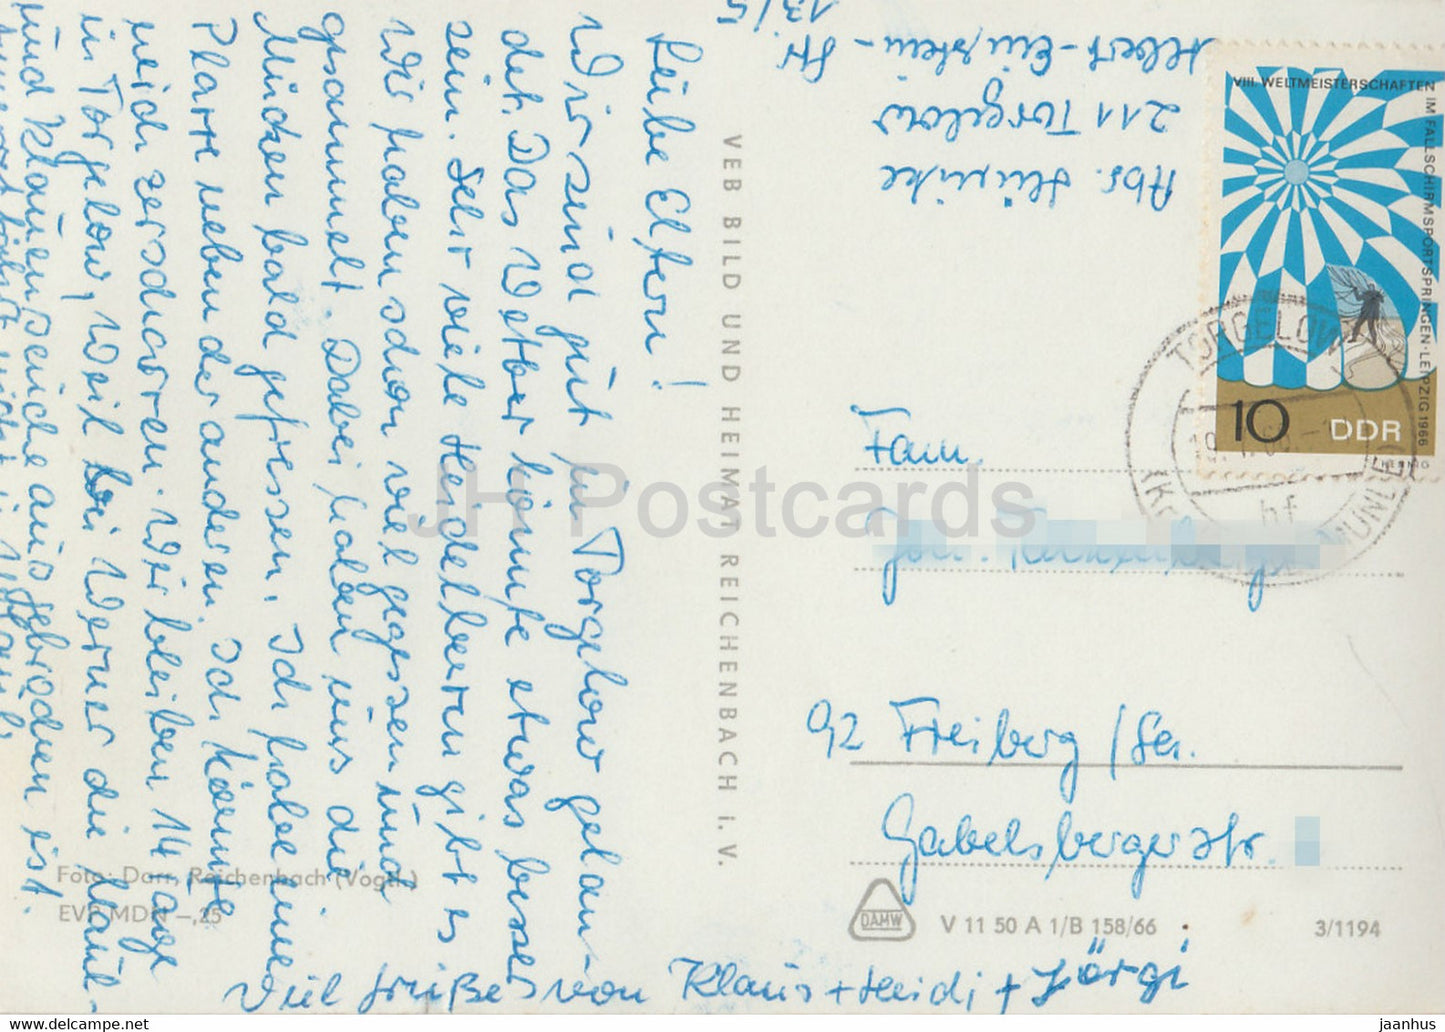 Liebe Eltern!
Wir sind gut in Torgelow gelan-
det. Das Wetter könnte etwas besser
sein. Sehr viele Heidelbeeren gibt es
Wir haben schon viel gegessen und
gesammelt. Dabei haben uns die
Mücken bald gefressen. Ich habe eine
Plarre neben der anderen. Ich könnte
mich zerschoren. Wir bleiben 14 Tage
in Torgelow, weil bei Werner die Maul-
und Klauenseuche ausgebrochen ist.
Viel Grüße von Klaus + Heidi + Jörgi
Abs. Heinike
211 Torgelow
Albert-Einstein-
Str. 13/5
VEB BILD UND HEIMAT REICHENBACH i. V.
VIII. WELTMEISTERSCHAFTEN IM FALLSCHIRMSPORTSPRINGEN · LEIPZIG 1966
10 DDR
TORGELOW
hf
Fam.
92 Freiberg /Sa.
Gabelsbergerstr.
Foto: Darr, Reichenbach (Vogtl.)
EVP MDN -,25
DAMW
V 11 50 A 1/B 158/66
3/1194
JH Postcards
jaanhus
www.delcampe.net